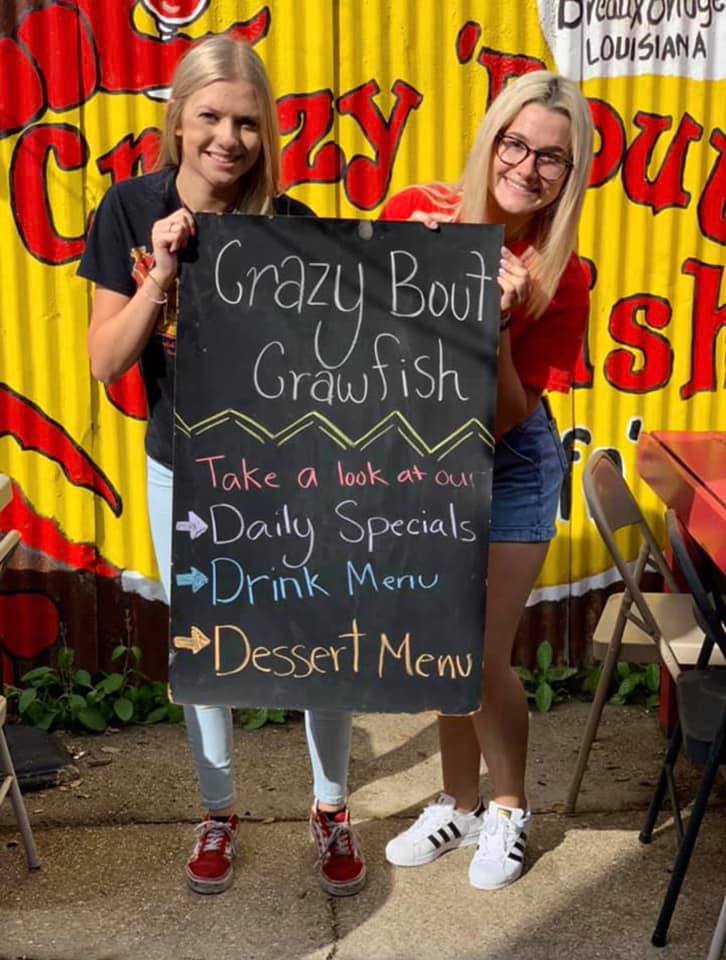 Breaux Bridge
LOUISIANA
Crazy 'Bout
Crazy Bout
Crawfish
Take a look at our
Daily Specials
Drink Menu
Dessert Menu